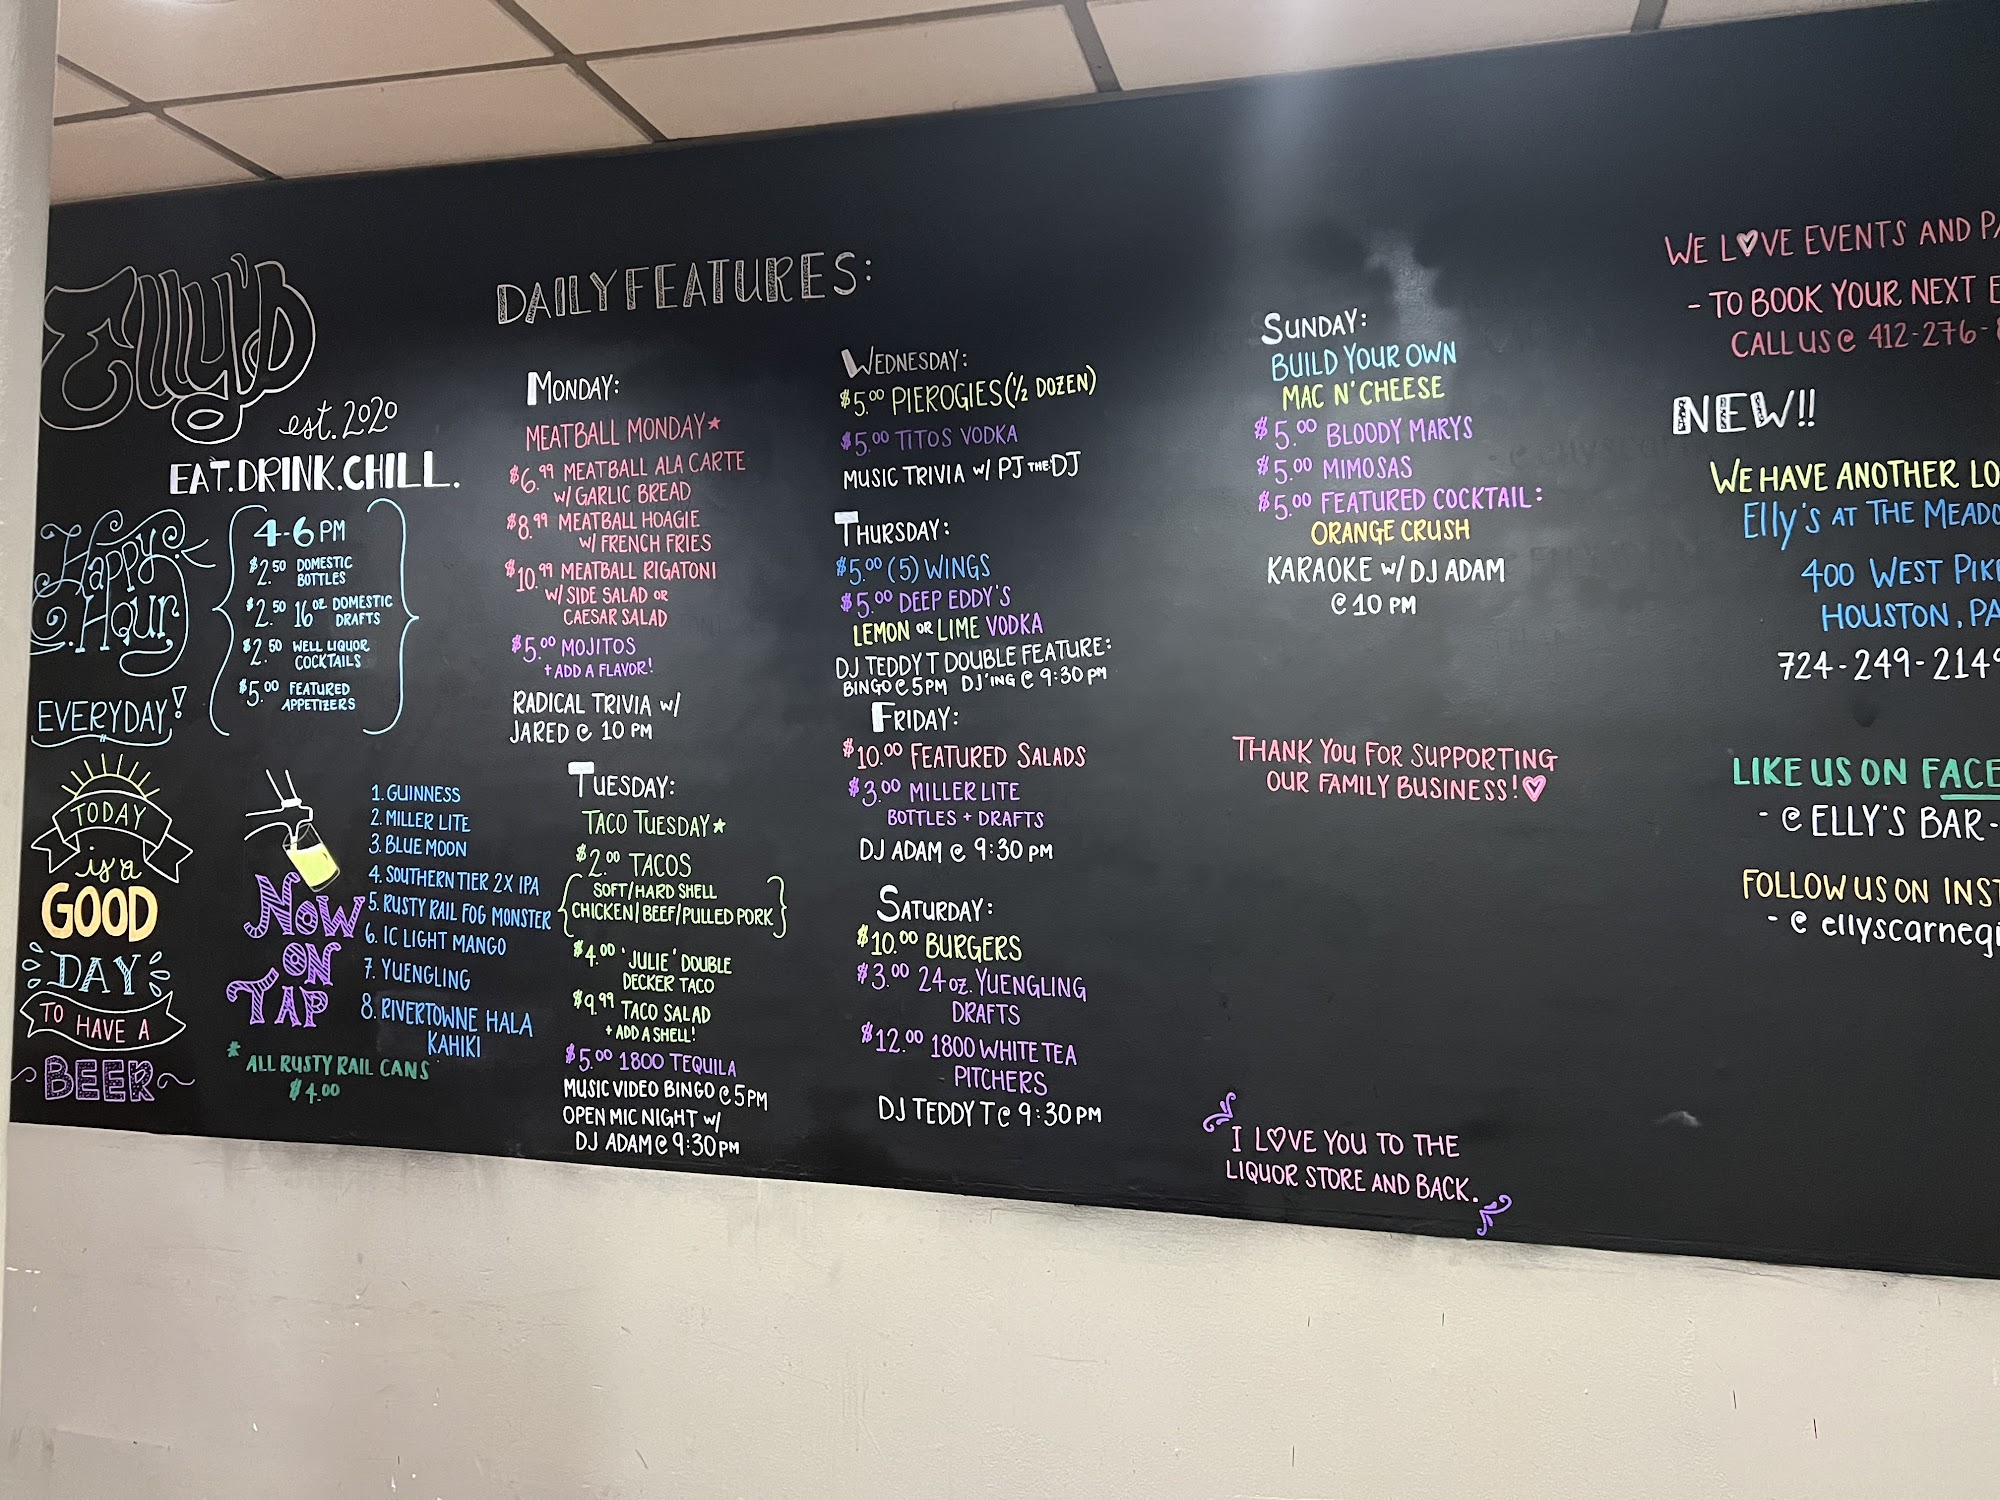 Elly's
est. 2020
EAT. DRINK. CHILL.
Happy
Hour
EVERYDAY!
4-6 PM
$2.50 DOMESTIC
BOTTLES
$2.50 16 OZ DOMESTIC
DRAFTS
$2.50 WELL LIQUOR
COCKTAILS
$5.00 FEATURED
APPETIZERS
TODAY
is a
GOOD
DAY
TO HAVE A
BEER
NOW
ON
TAP
1. GUINNESS
2. MILLER LITE
3. BLUE MOON
4. SOUTHERN TIER 2X IPA
5. RUSTY RAIL FOG MONSTER
6. IC LIGHT MANGO
7. YUENGLING
8. RIVERTOWNE HALA
KAHIKI
* ALL RUSTY RAIL CANS
$4.00
DAILY FEATURES:
MONDAY:
MEATBALL MONDAY★
$6.99 MEATBALL ALA CARTE
W/ GARLIC BREAD
$8.99 MEATBALL HOAGIE
W/ FRENCH FRIES
$10.99 MEATBALL RIGATONI
W/ SIDE SALAD OR
CAESAR SALAD
$5.00 MOJITOS
+ ADD A FLAVOR!
RADICAL TRIVIA W/
JARED @ 10 PM
TUESDAY:
TACO TUESDAY★
$2.00 TACOS
SOFT/HARD SHELL
CHICKEN/BEEF/PULLED PORK
$4.00 'JULIE' DOUBLE
DECKER TACO
$9.99 TACO SALAD
+ ADD A SHELL!
$5.00 1800 TEQUILA
MUSIC VIDEO BINGO @ 5PM
OPEN MIC NIGHT W/
DJ ADAM @ 9:30PM
WEDNESDAY:
$5.00 PIEROGIES (1/2 DOZEN)
$5.00 TITOS VODKA
MUSIC TRIVIA W/ PJ THE DJ
THURSDAY:
$5.00 (5) WINGS
$5.00 DEEP EDDY'S
LEMON OR LIME VODKA
DJ TEDDY T DOUBLE FEATURE:
BINGO @ 5PM DJ'ING @ 9:30 PM
FRIDAY:
$10.00 FEATURED SALADS
$3.00 MILLER LITE
BOTTLES + DRAFTS
DJ ADAM @ 9:30 PM
SATURDAY:
$10.00 BURGERS
$3.00 24 OZ. YUENGLING
DRAFTS
$12.00 1800 WHITE TEA
PITCHERS
DJ TEDDY T @ 9:30 PM
SUNDAY:
BUILD YOUR OWN
MAC N' CHEESE
$5.00 BLOODY MARYS
$5.00 MIMOSAS
$5.00 FEATURED COCKTAIL:
ORANGE CRUSH
KARAOKE W/ DJ ADAM
@ 10 PM
THANK YOU FOR SUPPORTING
OUR FAMILY BUSINESS! ♡
I LOVE YOU TO THE
LIQUOR STORE AND BACK.
WE LOVE EVENTS AND
- TO BOOK YOUR NEXT
CALL US @ 412-276-
NEW!!
WE HAVE ANOTHER
Elly's AT THE
400 WEST
HOUSTON, PA
724-249-2149
LIKE US ON
- @ ELLY'S BAR -
FOLLOW US ON
- @